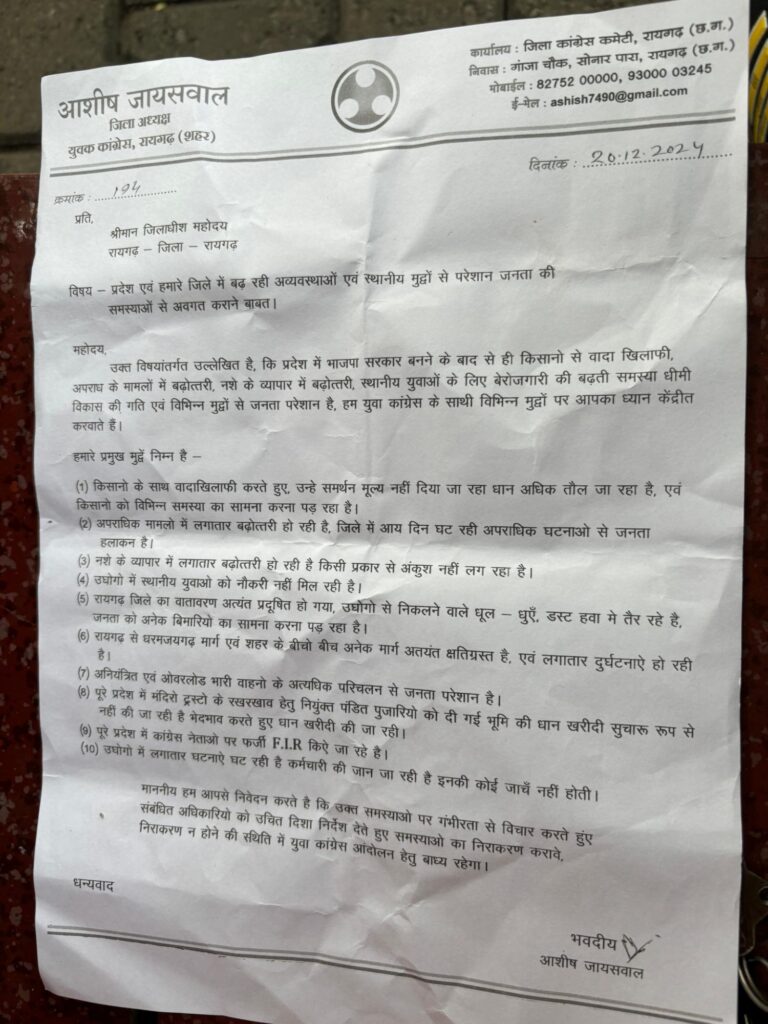 आशीष जायसवाल
जिला अध्यक्ष
युवक कांग्रेस, रायगढ़ (शहर)
कार्यालय : जिला कांग्रेस कमेटी, रायगढ़ (छ.ग.)
निवास : गांजा चौक, सोनार पारा, रायगढ़ (छ.ग.)
मोबाईल : 82752 00000, 93000 03245
ई-मेल : ashish7490@gmail.com
क्रमांक : 194
दिनांक : 20.12.2024
प्रति,
श्रीमान जिलाधीश महोदय
रायगढ़ – जिला – रायगढ़
विषय – प्रदेश एवं हमारे जिले में बढ़ रही अव्यवस्थाओं एवं स्थानीय मुद्वों से परेशान जनता की
समस्याओं से अवगत कराने बाबत।
महोदय,
उक्त विषयांतर्गत उल्लेखित है, कि प्रदेश में भाजपा सरकार बनने के बाद से ही किसानो से वादा खिलाफी,
अपराध के मामलों में बढ़ोत्तरी, नशे के व्यापार में बढ़ोत्तरी, स्थानीय युवाओं के लिए बेरोजगारी की बढ़ती समस्या धीमी
विकास की गति एवं विभिन्न मुद्वों से जनता परेशान है, हम युवा कांग्रेस के साथी विभिन्न मुद्वों पर आपका ध्यान केंद्रीत
करवाते हैं।
हमारे प्रमुख मुद्वें निम्न है –
(1) किसानो के साथ वादाखिलाफी करते हुए, उन्हे समर्थन मूल्य नहीं दिया जा रहा धान अधिक तौल जा रहा है, एवं
किसानो को विभिन्न समस्या का सामना करना पड़ रहा है।
(2) अपराधिक मामलो में लगातार बढ़ोत्तरी हो रही है, जिले में आय दिन घट रही अपराधिक घटनाओ से जनता
हलाकन है।
(3) नशे के व्यापार में लगातार बढ़ोत्तरी हो रही है किसी प्रकार से अंकुश नहीं लग रहा है।
(4) उघोगो में स्थानीय युवाओ को नौकरी नहीं मिल रही है।
(5) रायगढ़ जिले का वातावरण अत्यंत प्रदूषित हो गया, उघोगो से निकलने वाले धूल – धुएँ, डस्ट हवा मे तैर रहे है,
जनता को अनेक बिमारियो का सामना करना पड़ रहा है।
(6) रायगढ़ से धरमजयगढ़ मार्ग एवं शहर के बीचो बीच अनेक मार्ग अतयंत क्षतिग्रस्त है, एवं लगातार दुर्घटनाऐ हो रही
है।
(7) अनियंत्रित एवं ओवरलोड भारी वाहनो के अत्यधिक परिचलन से जनता परेशान है।
(8) पूरे प्रदेश में मंदिरो ट्रस्टो के रखरखाव हेतु नियुंक्त पंडित पुजारियो को दी गई भूमि की धान खरीदी सुचारू रूप से
नहीं की जा रही है भेदभाव करते हुए धान खरीदी की जा रही।
(9) पूरे प्रदेश में कांग्रेस नेताओ पर फर्जी F.I.R किऐ जा रहे है।
(10) उघोगो में लगातार घटनाऐ घट रही है कर्मचारी की जान जा रही है इनकी कोई जाचँ नहीं होती।
माननीय हम आपसे निवेदन करते है कि उक्त समस्याओ पर गंभीरता से विचार करते हुंए
संबंधित अधिकारियो को उचित दिशा निर्देश देते हुए समस्याओ का निराकरण करावे,
निराकरण न होने की स्थिति में युवा कांग्रेस आंदोलन हेतु बाध्य रहेगा।
धन्यवाद
भवदीय
आशीष जायसवाल